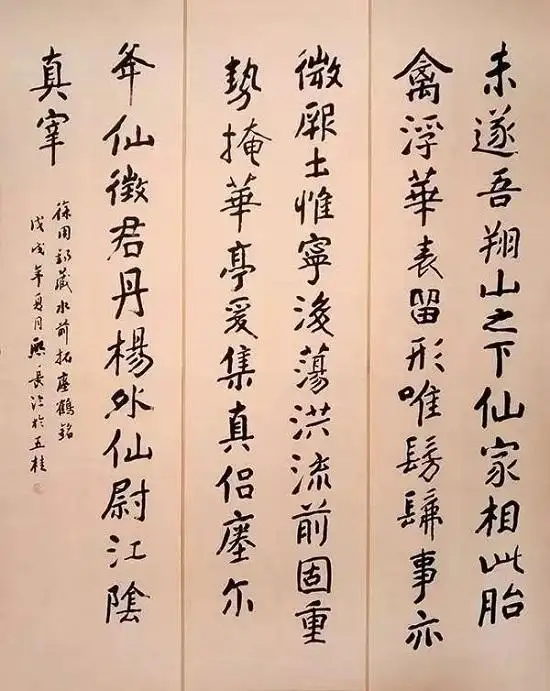 未遂吾翔山之下仙家相此胎
禽浮華表留形唯髣髴事亦
微厥土惟寧後蕩洪流前固重
勢掩華亭爰集真侣瘞尓
夅仙徵君丹楊外仙尉江陰
真宰
徐用錫藏水前拓瘞鶴銘
戊戌年夏月 於五桂